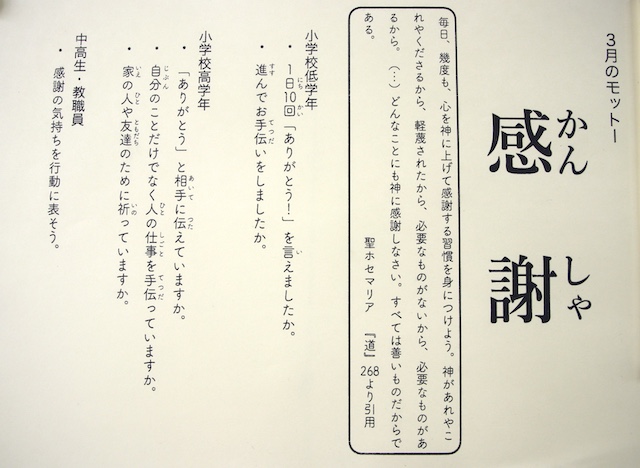 3月のモットー
感謝
かんしゃ
毎日、幾度も、心を神に上げて感謝する習慣を身につけよう。神があれやこ
れやくださるから、軽蔑されたから、必要なものがないから、必要なものがあ
るから。(…)どんなことにも神に感謝しなさい。すべては善いものだからで
ある。
聖ホセマリア 『道』268より引用
小学校低学年
・1日10回「ありがとう!」を言えましたか。
・進んでお手伝いをしましたか。
小学校高学年
・「ありがとう」と相手に伝えていますか。
・自分のことだけでなく人の仕事を手伝っていますか。
・家の人や友達のために祈っていますか。
中高生・教職員
・感謝の気持ちを行動に表そう。